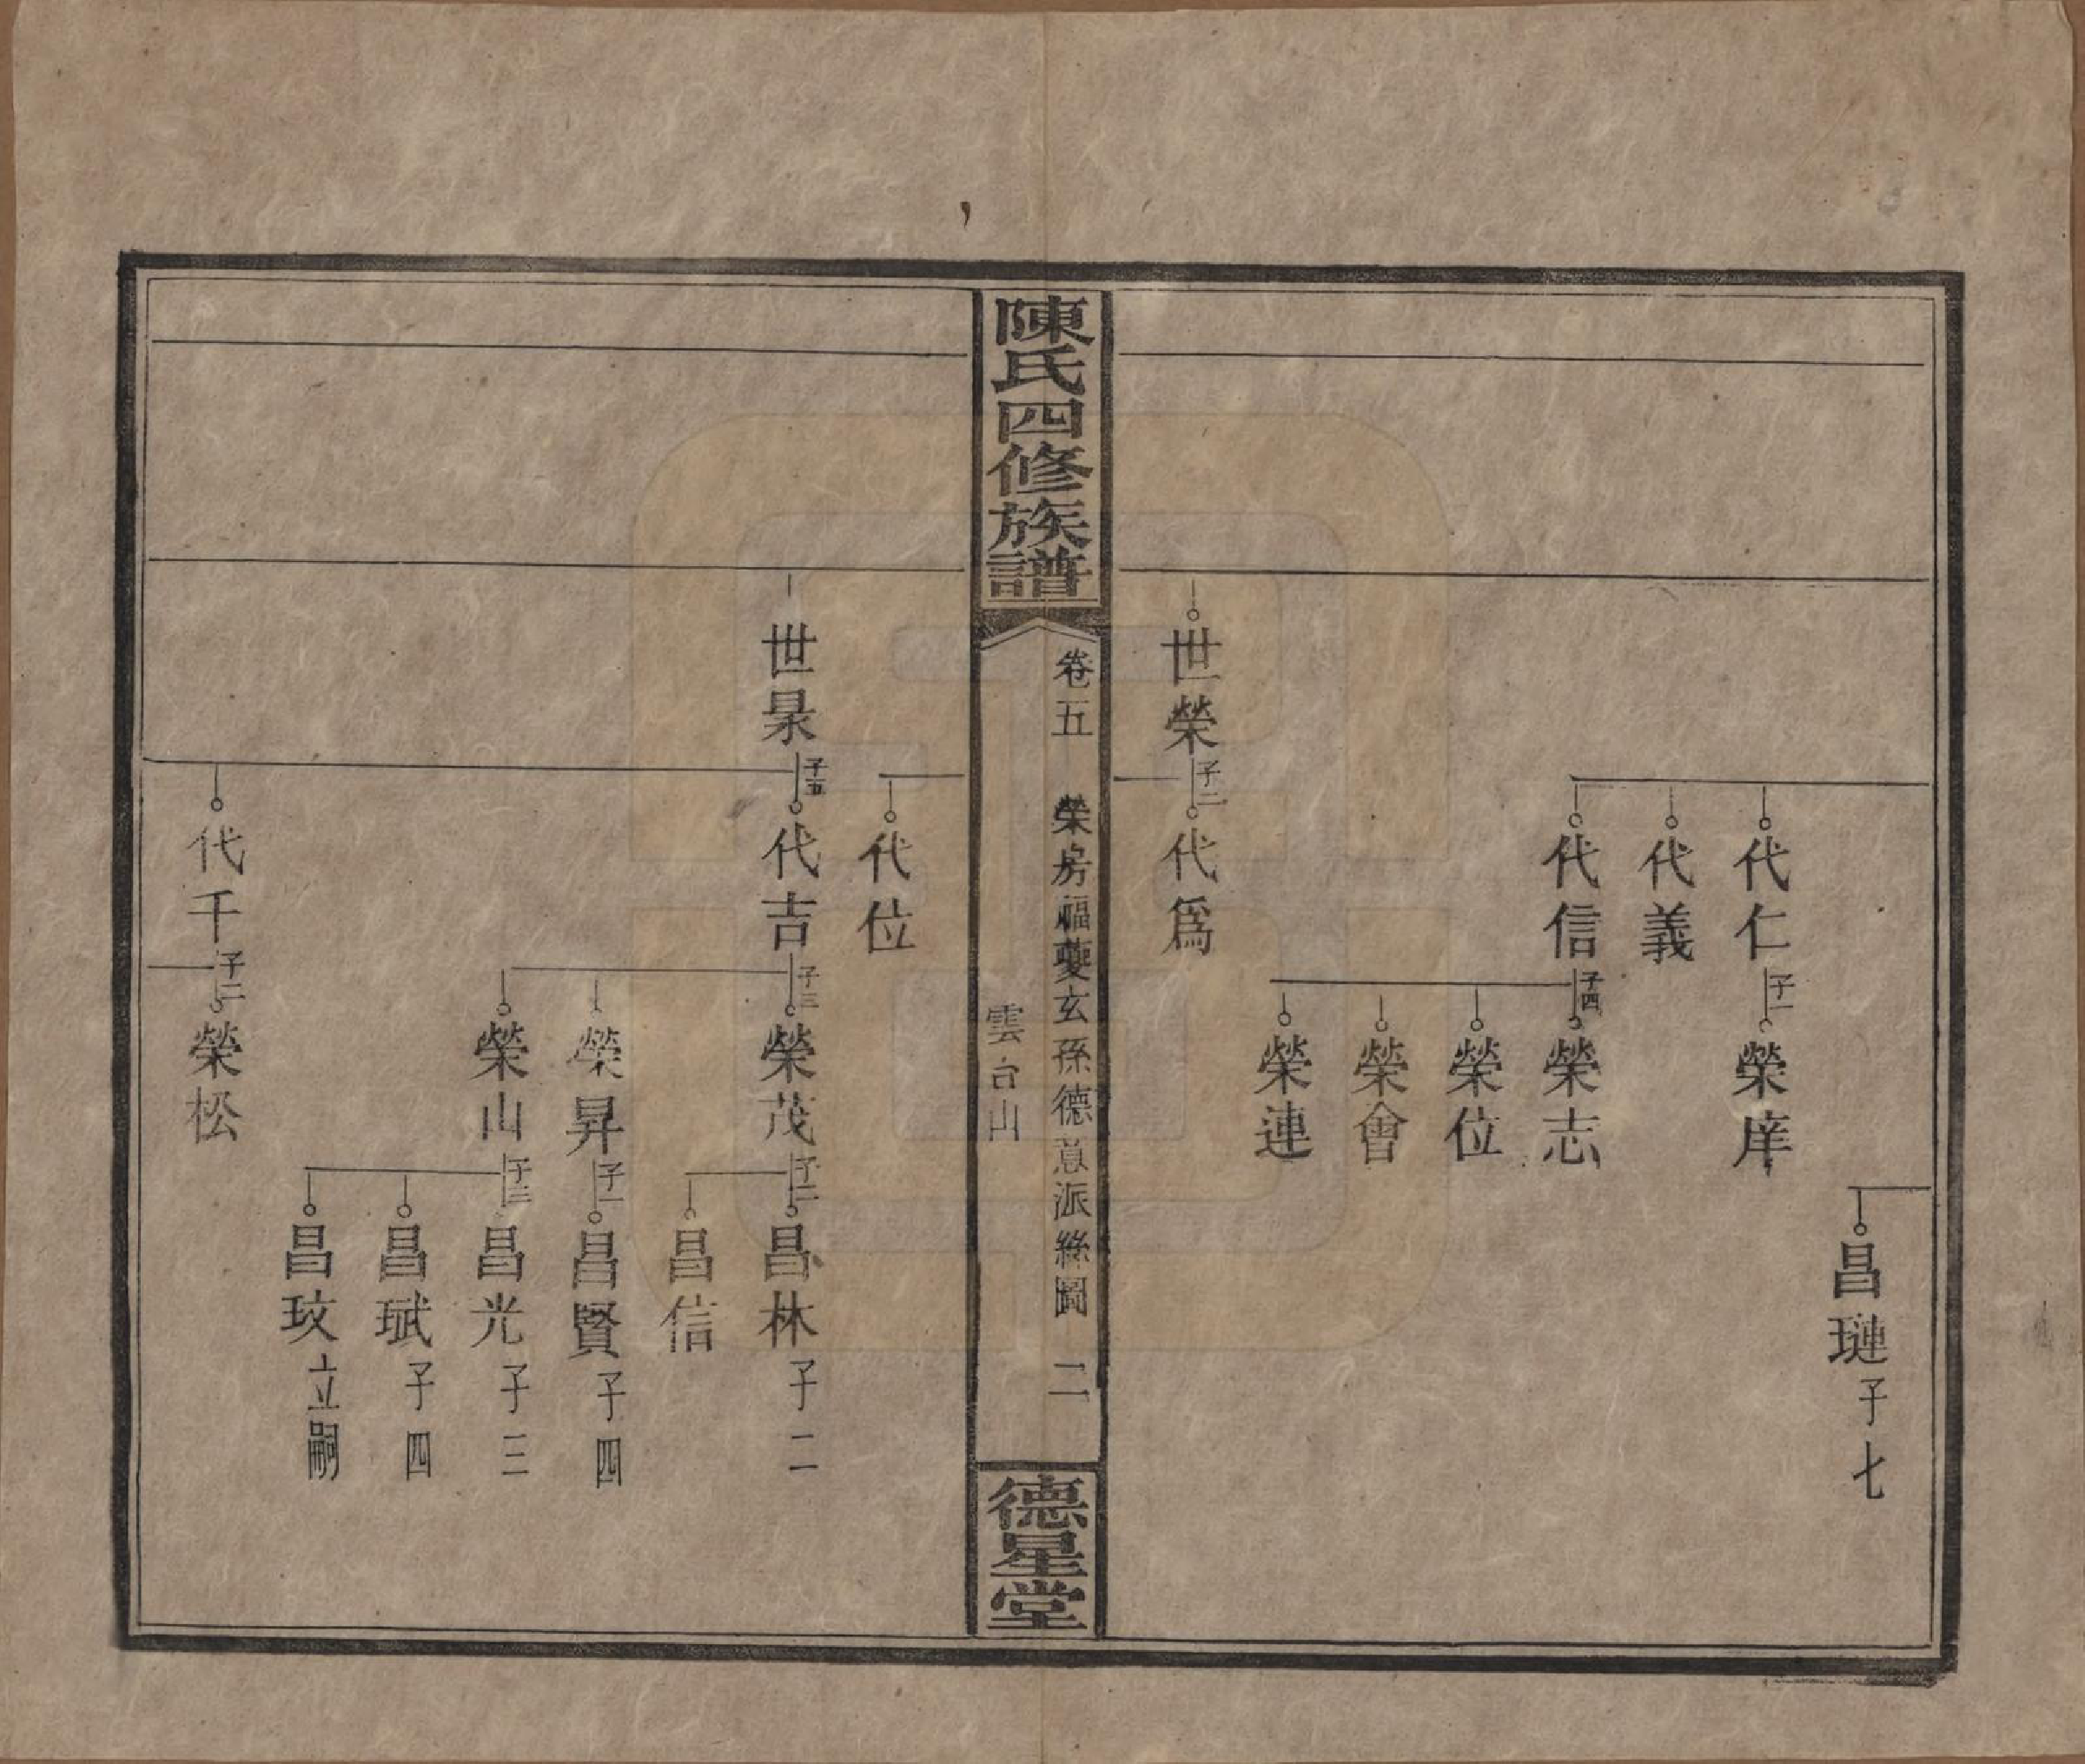 昌璉子七
代仁子一榮庠
代義
代信子四榮志
榮位
榮會
榮連
世榮子二代爲
陳氏四修族譜
卷五　榮房福夔玄孫德意派絲圖　二
雲台山
德星堂
代位
世㫤子五代吉子三榮茂子二昌林子二
昌信
榮昇子一昌賢子四
榮山子三昌光子三
昌珷子四
昌玟立嗣
代千子二榮松